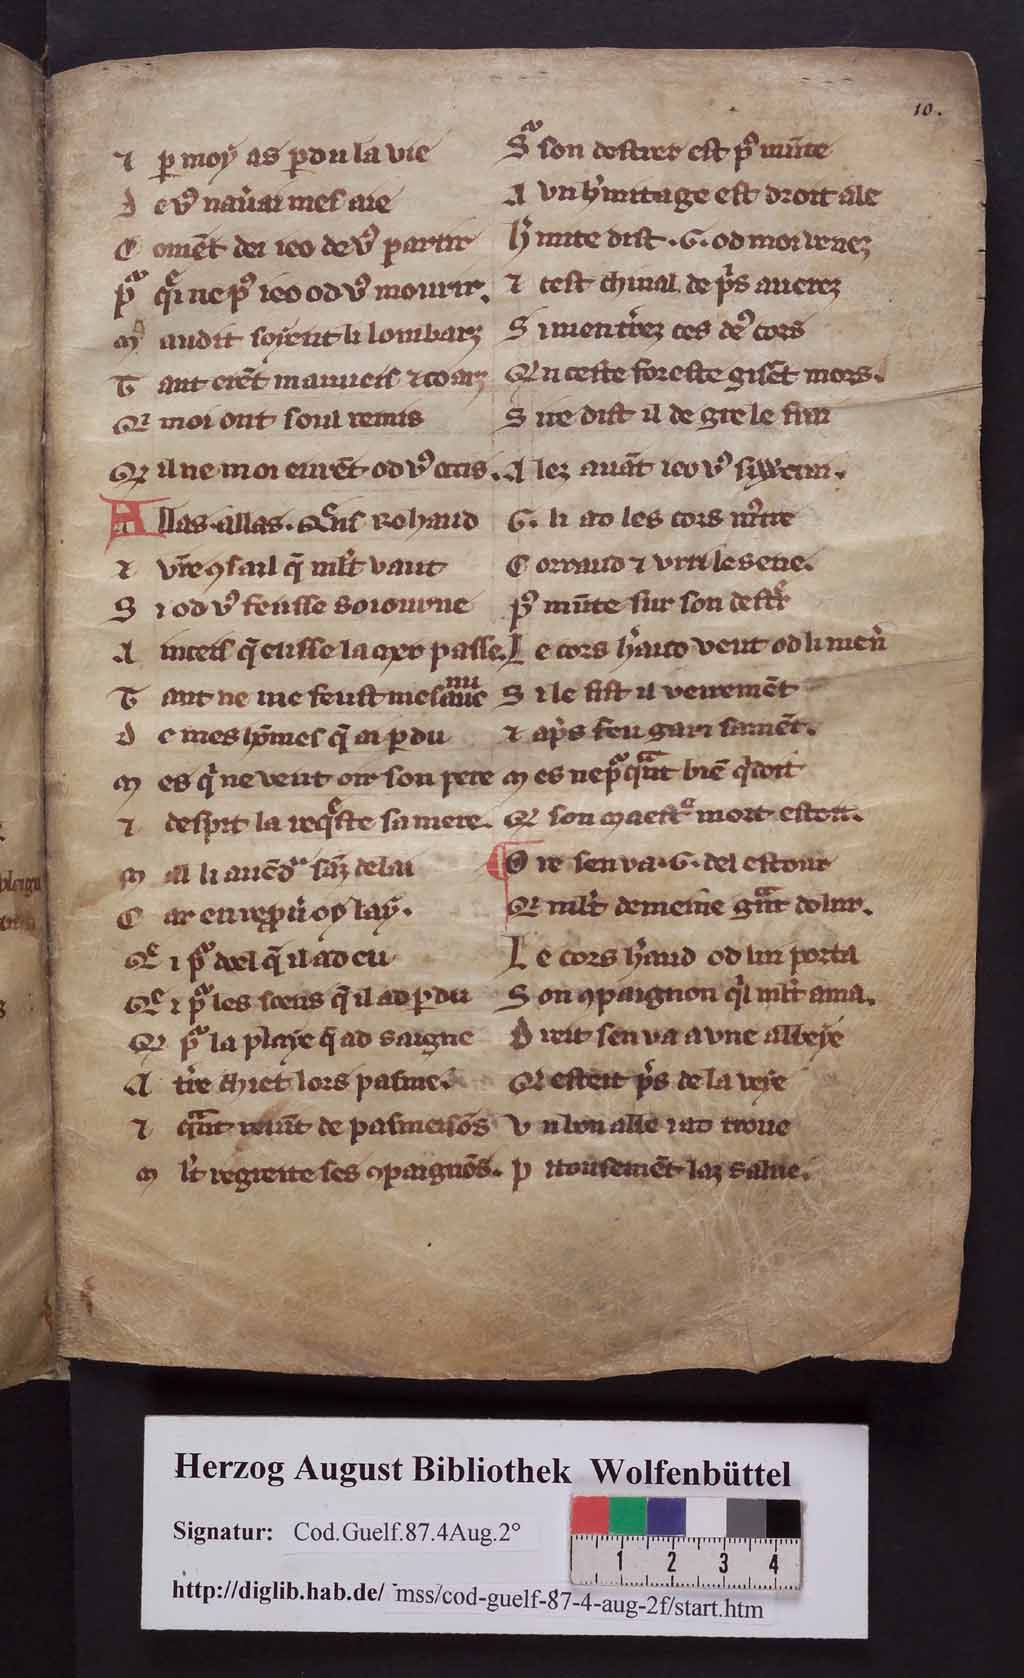 10.
⁊ p moy as pdu la vie
D e vꝰ nauai mes aie
C oment dei ieo de vꝰ partir
p qi ne pꝰ ieo od vꝰ mourir.
M audit soient li lombarz
T ant erēt mauueis ⁊ coarz
Q moi ont soul remis
Q il ne moi eurēt od vꝰ occis.
A llas. allas. Quēs Rohaud
⁊ vr̄e ꝯsail q̄ ml̄t vaut
S i od vꝰ feusse soiourne
A inceis q̄ eusse la mer passe.
T ant ne me feust mesauenu
D e mes hōmes q̄ ai pdu
M es qi ne veut oir son pere
⁊ despit la reqeste sa mere.
M al li auēdra sāz delai
C ar
Q i p doel q̄ il ad eu
Q i p les coeus q̄ il ad pdu
Q p la playe q̄ ad saigne
A t're chiet lors pasme.
⁊ qant reuīt de pasmeisōs
M l't regrette ses ꝯpaignōs.
S son destrer est pꝰ mūte
A vn h'mitage est droit ale
h' mite dist .G. od moi venez
⁊ cest chiual de p's auerez
S i mentrez ces deꝰ cors
Q n ceste foreste gisēt mors.
S ire dist il de gre le frai
A lez auāt ieo vꝰ siwerai.
G. li ad les cors mꝰtre
C orraud ⁊ vrri le sene.
pꝰ mūte sur son destr'
L e cors h'aud veut od li men'
S i le fist il veirremēt
⁊ ap's feu gari samēt.
M es ne p qant biē qidoit
Q son maestre mort estoit.
O re sen va .G. del estour
Q ml't demeine grant dolur.
L e cors h'aud od lui porta
S on ꝯpaignon qi ml't ama.
D reit sen va a vne abbeye
Q esteit p's de la veye
V n bon abbe i ad troue
P itousemēt laz salue.
Herzog August Bibliothek Wolfenbüttel
Signatur: Cod.Guelf.87.4Aug.2°
1 2 3 4
http://diglib.hab.de/ mss/cod-guelf-87-4-aug-2f/start.htm